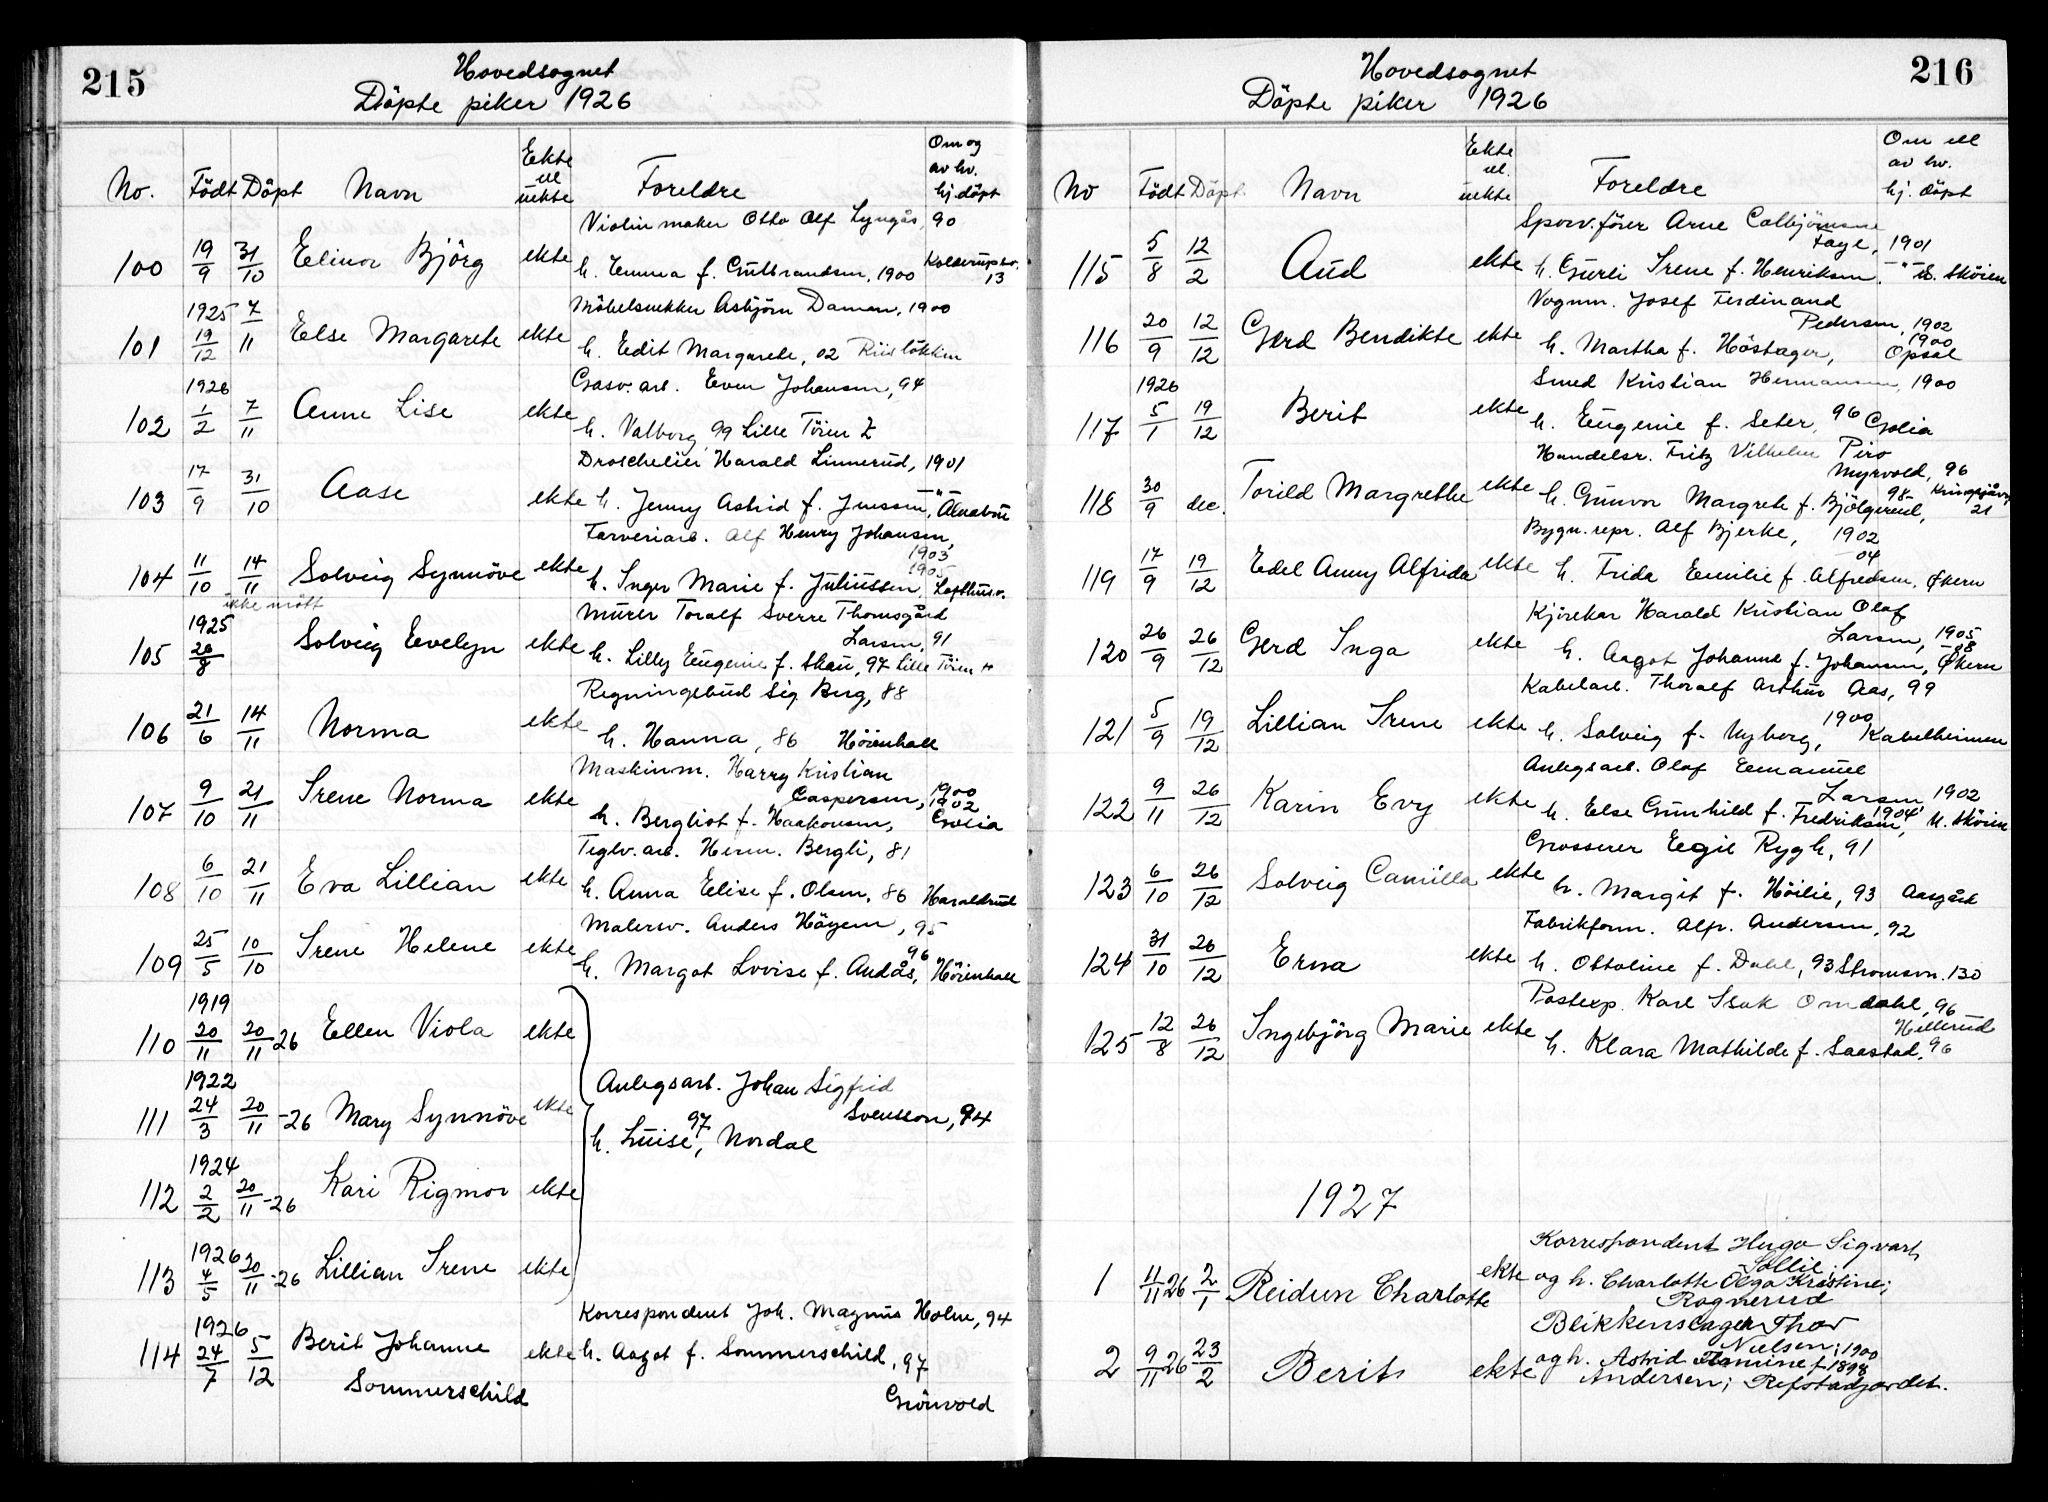 215
Hovedsognet
Döpte piker 1926
No. Födt Döpt Navn Ekte el uekte Foreldre Om og av hv. hj. döpt
Violinmaker Otto Alf Lyngås, 90
100 19/9 31/10 Elinor Björg ekte h. Emma f. Gulbrandsen, 1900 Kolderupsv. 13
1925 Möbelsnekker Asbjörn Daman, 1900
101 19/12 7/11 Else Margarete ekte h. Edit Margarete, 02 Riislökken
1926 Gasv. arb. Even Johansen, 94
102 1/2 7/11 Anne Lise ekte h. Valborg 99 Lille Töien
Droscheeier Harald Linnerud, 1901
103 17/9 31/10 Aase ekte h. Jenny Astrid f. Jensen, -"- Alnabru
Farveriarb. Alf Henry Johansen, 1903
104 11/10 14/11 Solveig Synnöve ekte h. Inger Marie f. Juliussen, 1905 Lofthusv.
ikke mött
1925 Murer Toralf Sverre Thomsgård
Larsen, 91
105 20/8 Solveig Evelyn ekte h. Lilly Eugenie f. Skau, 97 Lille Töien
Regningsbud Sig Berg, 88
106 21/6 14/11 Norma ekte h. Hanna, 86 Höienhall
Maskinm. Harry Kristian
Caspersen, 1900
107 9/10 21/11 Irene Norma ekte h. Bergliot f. Haakonsen, 1902 Golia
Teglv. arb. Herm. Bergli, 81
108 6/10 21/11 Eva Lillian ekte h. Anna Elise f. Olsen, 86 Haraldrud
Malersv. Anders Höyem, 95
109 25/5 10/10 Irene Helene ekte h. Margot Lovise f. Andås, 96 Höienhall
1919
110 20/11 20/11-26 Ellen Viola ekte
1922 Anlegsarb. Johan Sigfrid
111 24/3 20/11-26 Mary Synnöve ekte Svensson, 94
h. Luise, 97 Nordal
1924
112 2/2 20/11-26 Kari Rigmor ekte
1926
113 4/5 20/11-26 Lillian Irene ekte
Korrespondent Joh. Magnus Holm, 94
1926
114 24/7 5/12 Berit Johanne ekte h. Aagot f. Sommerschild, 97
Sommerschild Grönvold
216
Hovedsognet
Döpte piker 1926
No Födt Döpt. Navn Ekte el. uekte Foreldre Om el av hv. hj. döpt
Sporv.förer Arne Colbjörnsen
Faye, 1901
115 5/8 12/2 Aud ekte h. Gurli Irene f. Henriksen. -"- N. Sköien
Vognm. Josef Ferdinand
Pedersen, 1902
116 20/9 12/12 Gerd Bendikte ekte h. Martha f. Höstager, 1900 Opsal
1926 Smed Kristian Hermansen, 1900
117 5/1 19/12 Berit ekte h. Eugenie f. Seter, 96 Golia
Handelsr. Fritz Vilhelm Piro
Myrvold, 96
118 30/9 dec. Torild Margrethe ekte h. Gunvor Margrete f. Bjölgerud, 98 21
Bygn. repr. Alf Bjerke, 1902
119 17/9 19/12 Edel Anny Alfrida ekte h. Frida Emilie f. Alfredsen, 04 Økern
Kjörekar Harald Kristian Olaf
Larsen, 1905
120 26/9 26/12 Gerd Inga ekte h. Aagot Johanne f. Johansen, -08 Økern
Kabelarb. Thoralf Arthur Aas, 99
121 5/9 19/12 Lillian Irene ekte h. Solveig f. Nyborg, 1900 Kabelheimen
Anlegsarb. Olaf Emanuel
Larsen 1902
122 9/11 26/12 Karin Evy ekte h. Else Gunhild f. Fredriksen, 1904 N. Sköien
Grosserer Egil Rygh, 91
123 6/10 26/12 Solveig Camilla ekte h. Margit f. Höilie, 93 Aasgård
Fabrikform. Alfr. Andersen, 92
124 31/10 26/12 Erna ekte h. Ottoline f. Dahl, 93 Strömsv. 130
Postexp. Karl Isak Omdahl, 96
Hellerud
125 12/8 26/12 Ingebjörg Marie ekte h. Klara Mathilde f. Saastad, 96
1927
Korrespondent Hugo Sigvart
Sollie;
1 11/11 26 2/1 Reidun Charlotte ekte og h. Charlotte Olga Kristine;
Rognerud
Blikkenslager Thor
Nielsen; 1900
2 9/11 26 23/2 Berit ekte og h. Astrid f. 1898
Andersen; Refstadjordet.